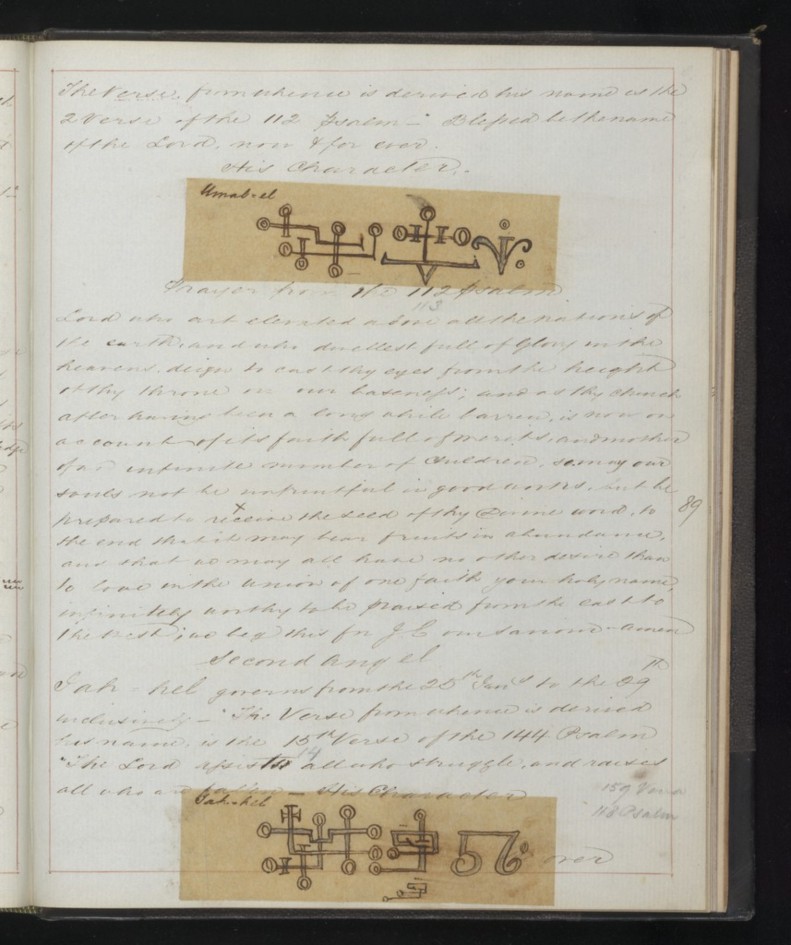 The Verse, from whence is derived his name is the
2 Verse of the 112 Psalm - " Blessed be the name
of the Lord, now & for ever.
His Character.
Umab-el
Prayer from the 112 Psalm
113
Lord who art elevated above all the nations of
the earth, and who dwellest full of Glory in the
heavens, deign to cast thy eyes from the height
of thy throne on our baseness; and as thy Church
after having been a long while barren, is now on
account of its faith full of merits, and mother
of an infinite number of Children, so may our
souls not be unfruitful in good works, but be
prepared to receive the seed of thy Divine word, to
the end that it may bear fruits in abundance,
and that we may all have no other desire than
to love in the Union of one faith your holy name,
infinitely worthy to be praised from the east to
the West; we beg this fr J C our Saviour - amen
89
Second angel
Jah-hel governs from the 25th Jany to the 29th
inclusively - " The Verse from whence is derived
his name, is the 15th Verse of the 144 Psalm
14
"The Lord all who struggle, and raises
all who are fallen - His Character
159 Verse
118 Psalm
Jah-hel
over